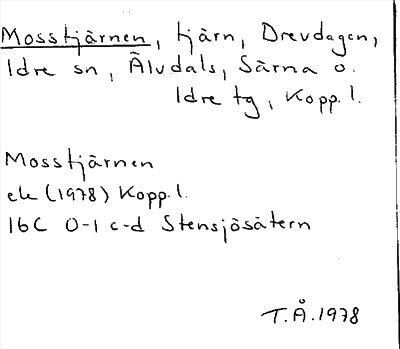 Mosstjärnen, tjärn, Drevdagen,
Idre sn, Älvdals, Särna o.
Idre tg, Kopp. l.
Mosstjärnen
ek (1978) Kopp. l.
16C 0-1 c-d Stensjösätern
T.Å. 1978